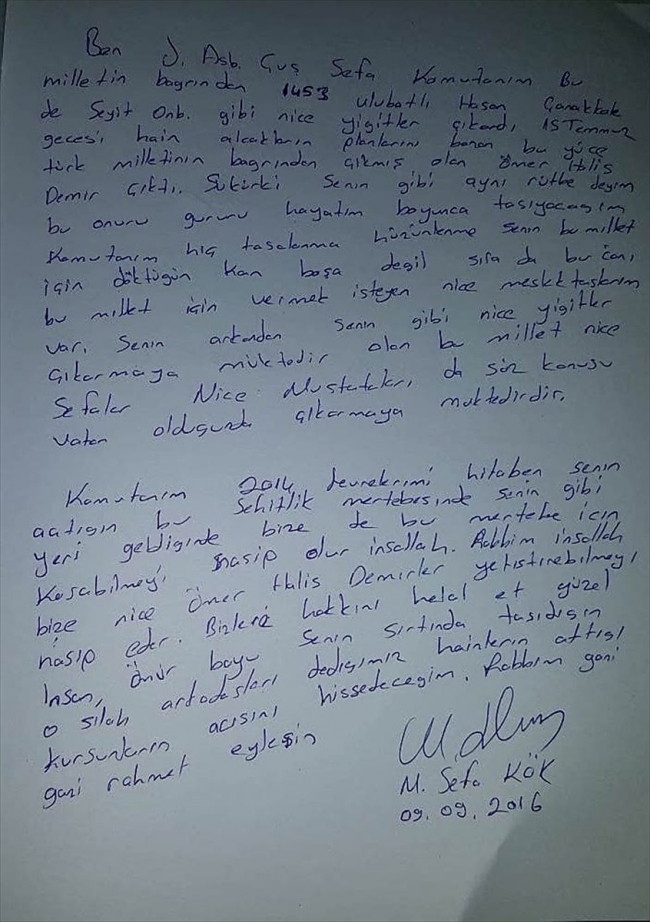 Ben J. Asb. Çvş Sefa Komutanım Bu
milletin bagrınden 1453 Ulubatlı Hasan Çanakkale
de Seyit Onb. gibi nice yigitler çıkardı, 15 Temmuz
gecesi hain alçakların planlarını bozan bu yüce
türk milletinin bagrından çıkmış olan Ömer Halis
Demir çıktı. Şükürki Senin gibi aynı rütbe deyim
bu onuru gururu hayatım boyunca taşıyacagım
Komutanım hiç tasalanma hüzünlenme senin bu millet
için döktügün kan boşa degil sıra da bu canı
bu millet için vermek isteyen nice meslektaşlarım
var. Senin arkandan senin gibi nice yigitler
çıkarmaya müktedir olan bu millet nice
Sefalar Nice Mustafaları da söz konusu
vatan oldugunda çıkarmaya muktedirdir.
Komutanım 2014 devrelerimi hitaben senin
açtıgın bu Şehitlik mertebesinde senin gibi
yeri geldiginde bize de bu mertebe için
Koşabilmeyi nasip olur inşallah. Rabbim inşallah
bize nice Ömer Halis Demirler yetiştirebilmeyi
nasip eder. Bizlere hakkını helal et güzel
İnsan, Ömür boyu senin sırtında taşıdıgın
o silah arkadaşları dedigimiz hainlerin attıgı
kurşunların acısını hissedecegim. Rabbim gani
gani rahmet eylesin
M. Sefa KÖK
09.09.2016